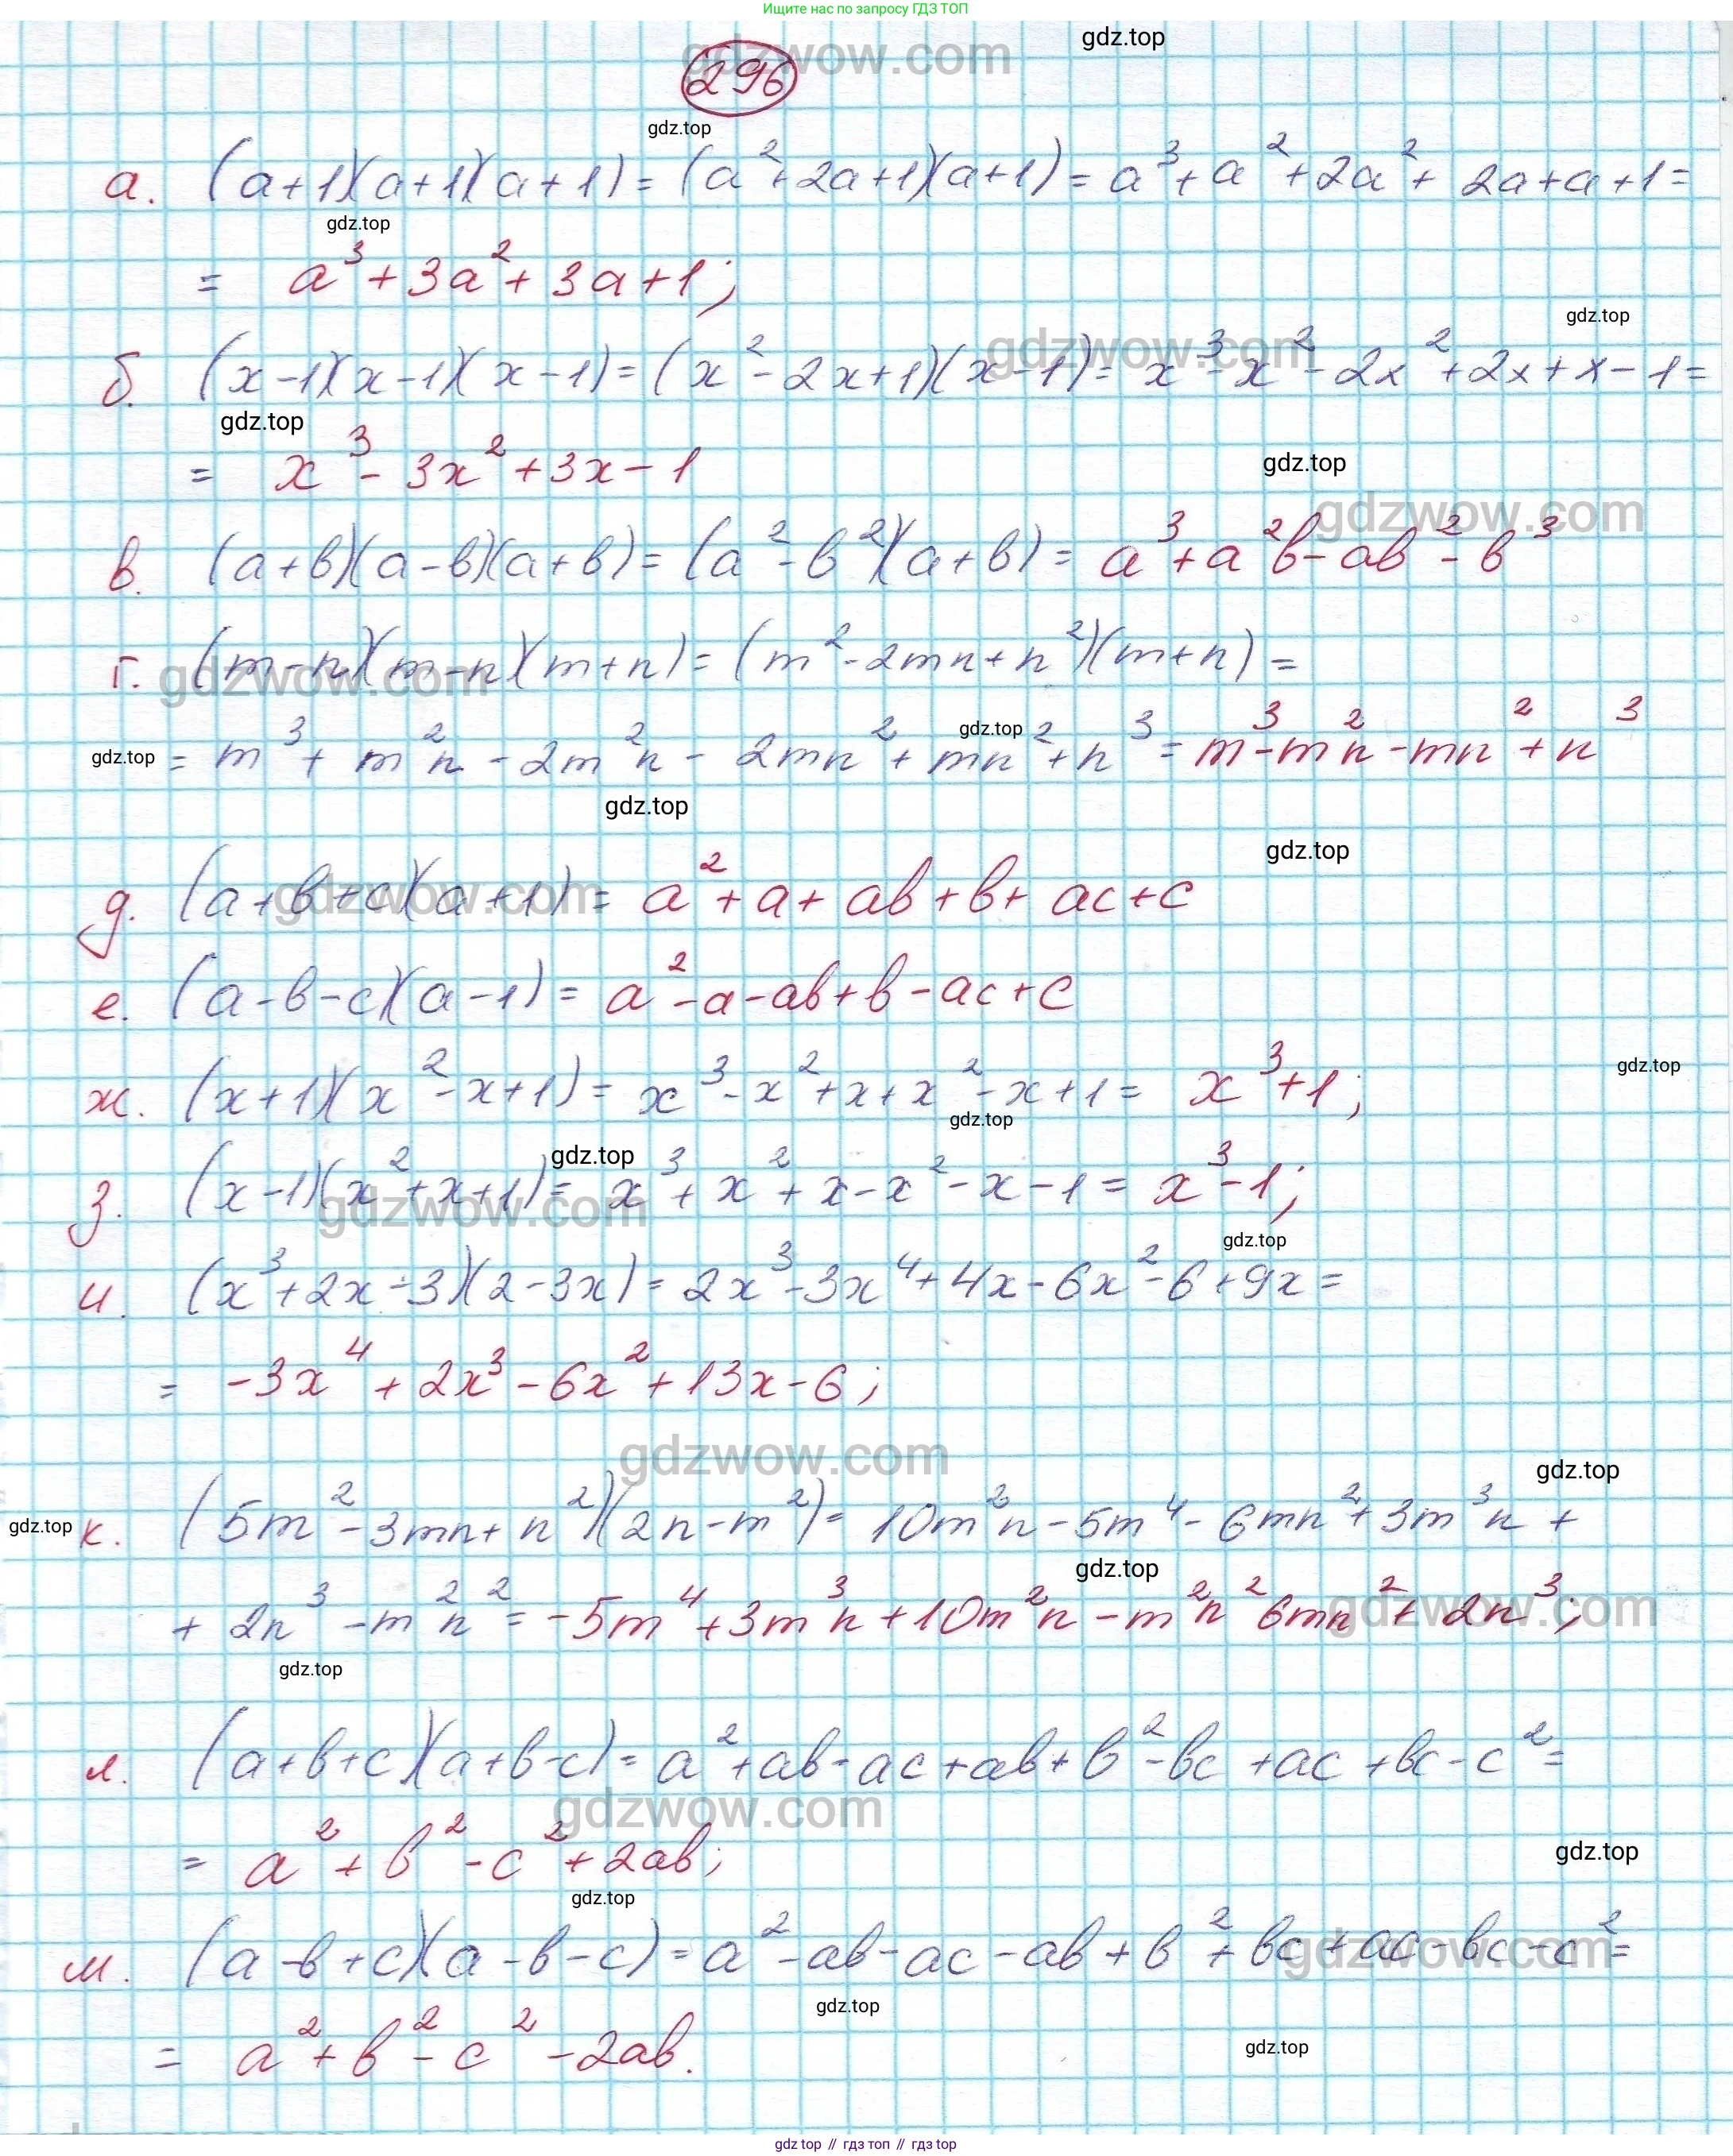 Ищите нас по запросу ГДЗ ТОП
gdzwow.com gdz.top
296
gdz.top
а. (a+1)(a+1)(a+1) = (a²+2a+1)(a+1) = a³+a²+2a²+2a+a+1=
gdz.top
= a³+3a²+3a+1;
gdz.top
gdzwow.com
б. (x-1)(x-1)(x-1) = (x²-2x+1)(x-1) = x³-x²-2x²+2x+x-1=
gdz.top
= x³-3x²+3x-1
gdz.top
gdzwow.com
в. (a+b)(a-b)(a+b) = (a²-b²)(a+b) = a³+a²b-ab²-b³
г. (m-n)(m-n)(m+n) = (m²-2mn+n²)(m+n) =
gdzwow.com
gdz.top gdz.top
= m³+m²n-2m²n-2mn²+mn²+n³ = m³-m²n-mn²+n³
gdz.top
gdz.top
д. (a+b+c)(a+1) = a²+a+ab+b+ac+c
gdzwow.com
е. (a-b-c)(a-1) = a²-a-ab+b-ac+c
gdz.top
ж. (x+1)(x²-x+1) = x³-x²+x+x²-x+1 = x³+1;
gdz.top
gdz.top
з. (x-1)(x²+x+1) = x³+x²+x-x²-x-1 = x³-1;
gdzwow.com
gdz.top
и. (x³+2x-3)(2-3x) = 2x³-3x⁴+4x-6x²-6+9x=
= -3x⁴+2x³-6x²+13x-6;
gdzwow.com
gdz.top
gdz.top
к. (5m²-3mn+n²)(2n-m²) = 10m²n-5m⁴-6mn²+3m³n+
gdz.top
+2n³-m²n² = -5m⁴+3m³n+10m²n-m²n² 6mn²+2n³;
gdzwow.com
gdz.top
л. (a+b+c)(a+b-c) = a²+ab-ac+ab+b²-bc+ac+bc-c²=
gdzwow.com
gdz.top
= a²+b²-c²+2ab;
gdz.top
м. (a-b+c)(a-b-c) = a²-ab-ac-ab+b²+bc+ac-bc-c²=
gdzwow.com
gdz.top
= a²+b²-c²-2ab.
gdz.top
gdz.top // гдз топ // гдз top